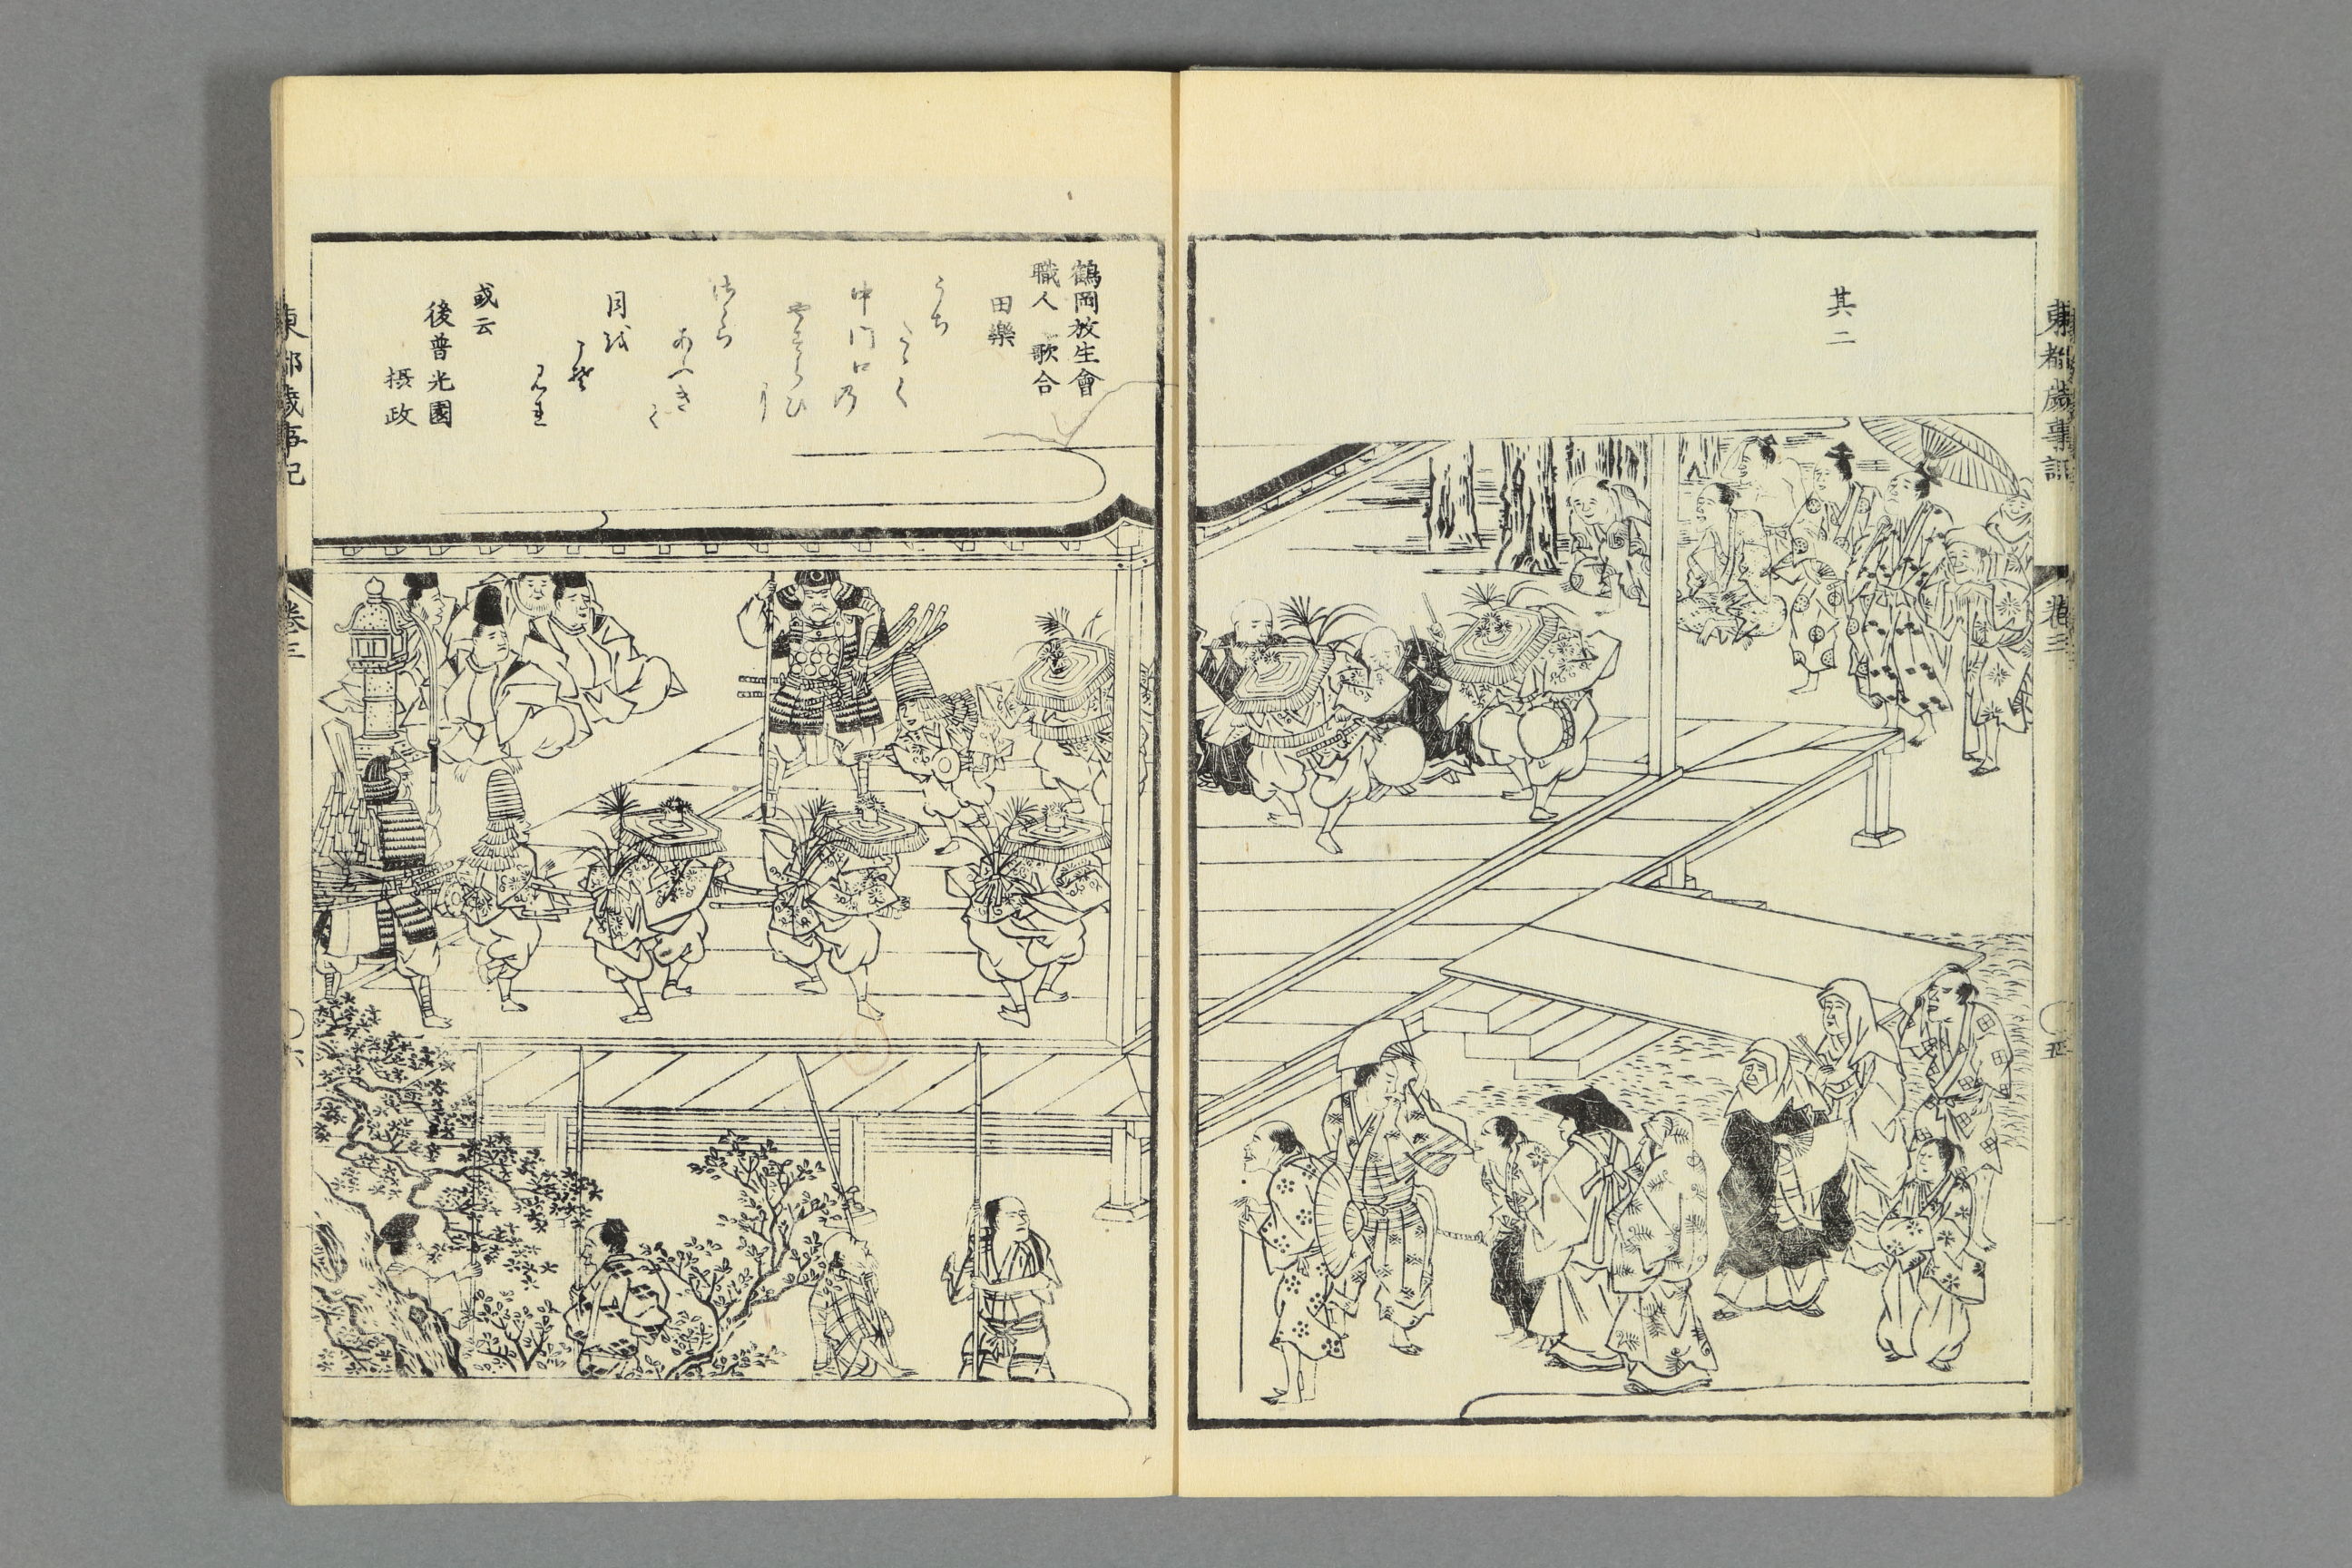 東都歳事記
巻三
五
其二
鶴岡放生會
職人歌合
田樂
うち
たゝく
中門口乃
やすらひ
あへき
月
こそ
或云
後普光園
摂政
東都歳事記
巻三
六